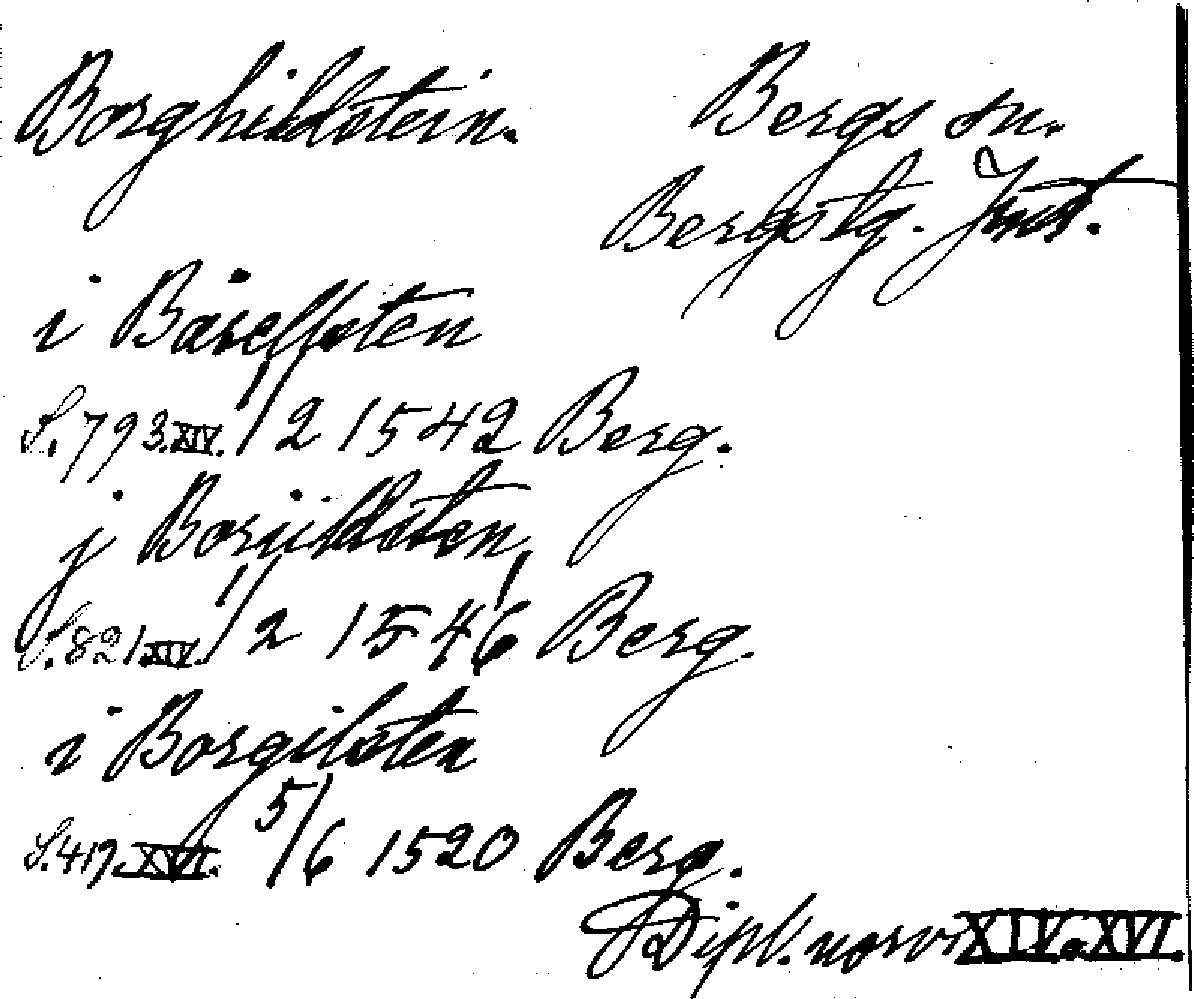 Borghildstein. Bergs sn.
Bergstg. Jnst.
i Bårellsten
S. 793. XIV. 1/2 1542 Berg.
j Borjildsten
S. 821 XIV. 1/2 1546 Berg.
i Borgilsten
S. 417. XVI. 5/6 1520 Berg.
Dipl. norv. XIV. o. XVI.